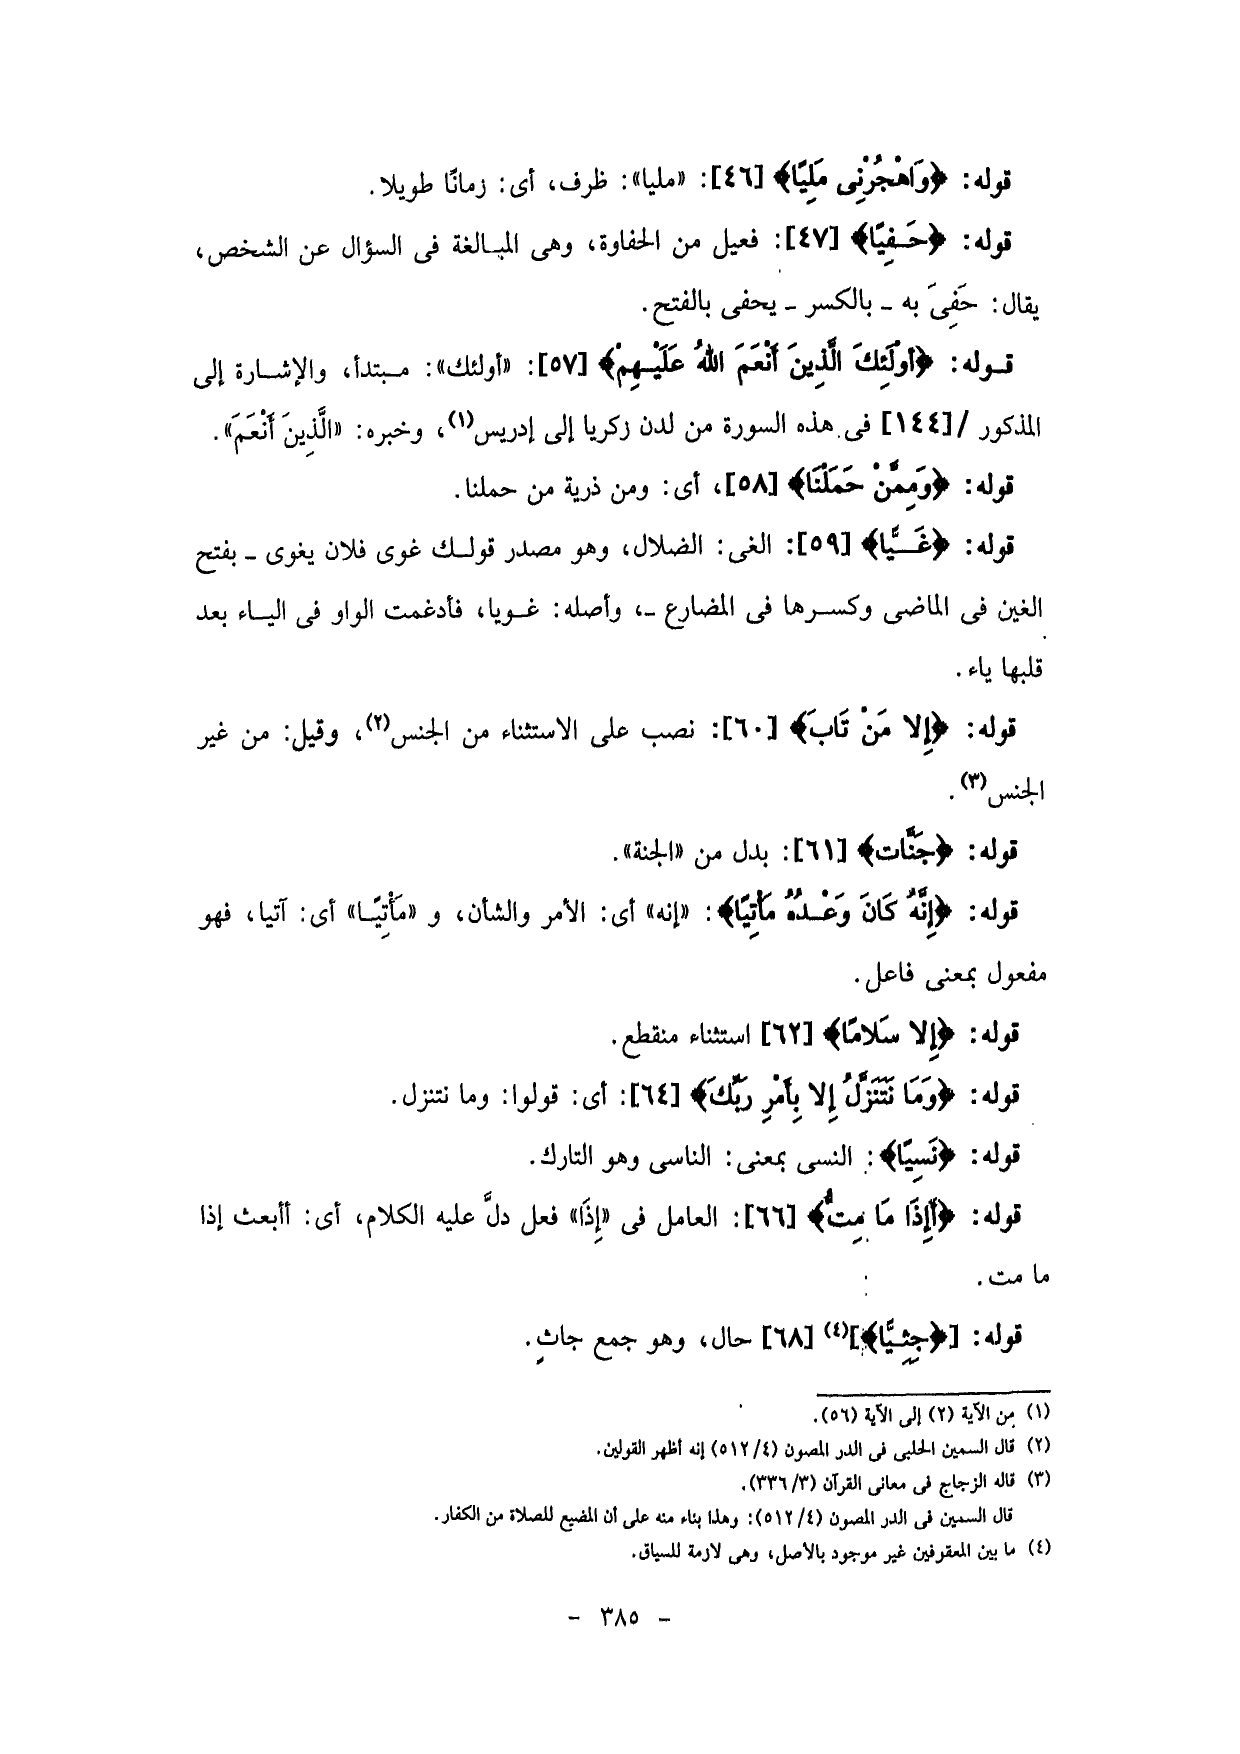 قوله: ﴿وَاهْجُرْنِى مَلِيًا﴾ [٤٦]: «مليا»: ظرف، أى: زمانًا طويلا.
قوله: ﴿حَفِيًا﴾ [٤٧]: فعيل من الحفاوة، وهى المبالغة فى السؤال عن الشخص،
يقال: حَفِىَ به ـ بالكسر ـ يحفى بالفتح.
قوله: ﴿أُولَئِكَ الَّذِينَ أَنْعَمَ اللهُ عَلَيْهِمْ﴾ [٥٧]: «أولئك»: مبتدأ، والإشارة إلى
المذكور /[١٤٤] فى هذه السورة من لدن زكريا إلى إدريس(١)، وخبره: «الَّذِينَ أَنْعَمَ».
قوله: ﴿وَمِمَّنْ حَمَلْنَا﴾ [٥٨]، أى: ومن ذرية من حملنا.
قوله: ﴿غَيًّا﴾ [٥٩]: الغى: الضلال، وهو مصدر قولك غوى فلان يغوى ـ بفتح
الغين فى الماضى وكسرها فى المضارع ـ، وأصله: غويا، فأدغمت الواو فى الياء بعد
قلبها ياء.
قوله: ﴿إِلا مَنْ تَابَ﴾ [٦٠]: نصب على الاستثناء من الجنس(٢)، وقيل: من غير
الجنس(٣).
قوله: ﴿جَنَّات﴾ [٦١]: بدل من «الجنة».
قوله: ﴿إِنَّهُ كَانَ وَعْدُهُ مَأْتِيًا﴾: «إنه» أى: الأمر والشأن، و «مَأْتِيًا» أى: آتيا، فهو
مفعول بمعنى فاعل.
قوله: ﴿إِلا سَلامًا﴾ [٦٢] استثناء منقطع.
قوله: ﴿وَمَا نَتَنَزَّلُ إِلا بِأَمْرِ رَبِّكَ﴾ [٦٤]: أى: قولوا: وما نتنزل.
قوله: ﴿نَسِيًا﴾: النسى بمعنى: الناسى وهو التارك.
قوله: ﴿أَإِذَا مَا مِتُّ﴾ [٦٦]: العامل فى «إِذَا» فعل دلَّ عليه الكلام، أى: أأبعث إذا
ما مت.
قوله: [﴿جِثِيًّا﴾](٤) [٦٨] حال، وهو جمع جاثٍ.
(١) من الآية (٢) إلى الآية (٥٦).
(٢) قال السمين الحلبى فى الدر المصون (٥١٢/٤) إنه أظهر القولين.
(٣) قاله الزجاج فى معانى القرآن (٣٣٦/٣).
قال السمين فى الدر المصون (٥١٢/٤): وهذا بناء منه على أن المضيع للصلاة من الكفار.
(٤) ما بين المعقوفين غير موجود بالأصل، وهى لازمة للسياق.
- ٣٨٥ -